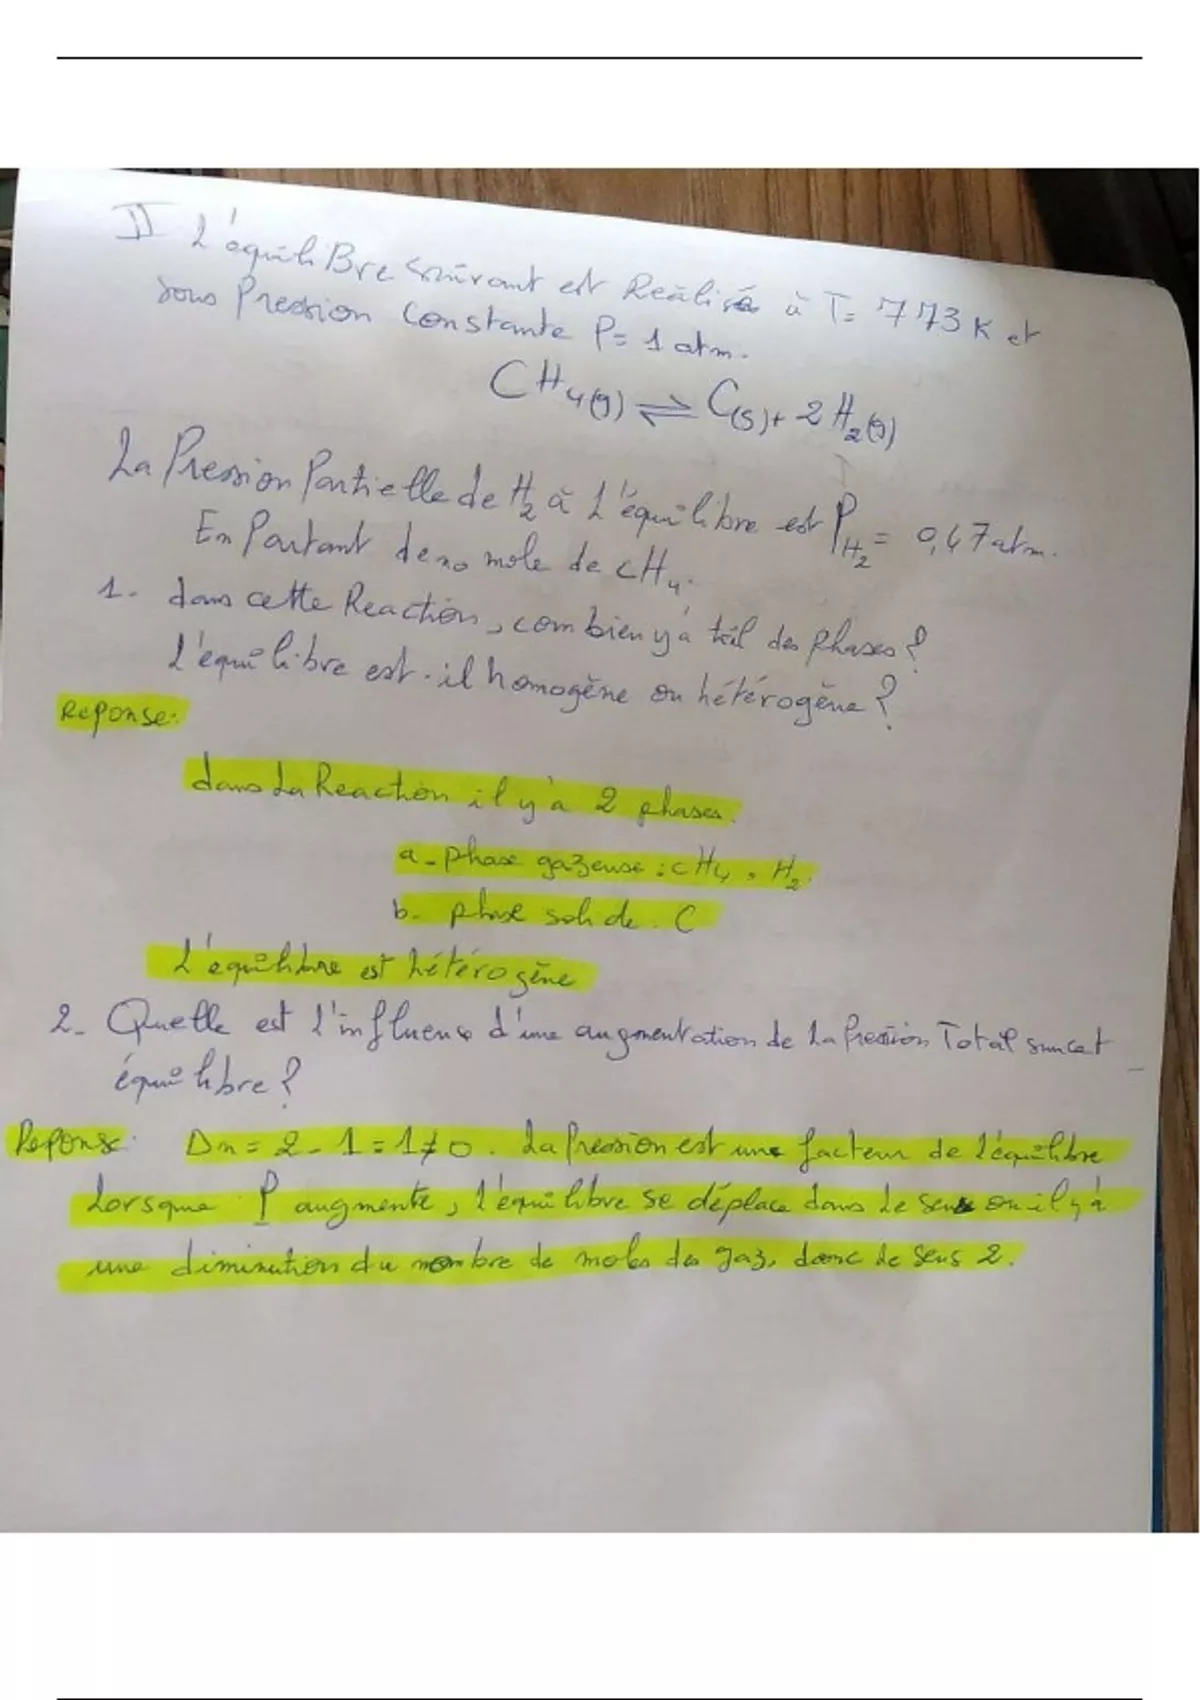 II L'équiliBre suivant est Realisé à T= 773K et
sous Pression Constante P= 1 atm.
CH4(g) ⇌ C(s) + 2 H2(g)
La Pression Partielle de H2 à L'équilibre est PH2 = 0,47 atm.
En Partant de n0 mole de CH4.
1- dans cette Reaction, combien y'a t-il des phases?
L'équilibre est-il homogène ou hétérogène?
Reponse:
dans La Reaction il y'a 2 phases.
a- phase gazeuse : CH4, H2.
b- phase solide : C
L'équilibre est hétérogène
2- Quelle est l'influence d'une augmentation de La Pression Total sur cet
équilibre?
Reponse: Δn = 2 - 1 = 1 ≠ 0. La Pression est une facteur de L'équilibre
Lorsque P augmente, L'équilibre se déplace dans Le sens où il y'a
une diminution du nombre de moles des gaz, donc Le sens 2.